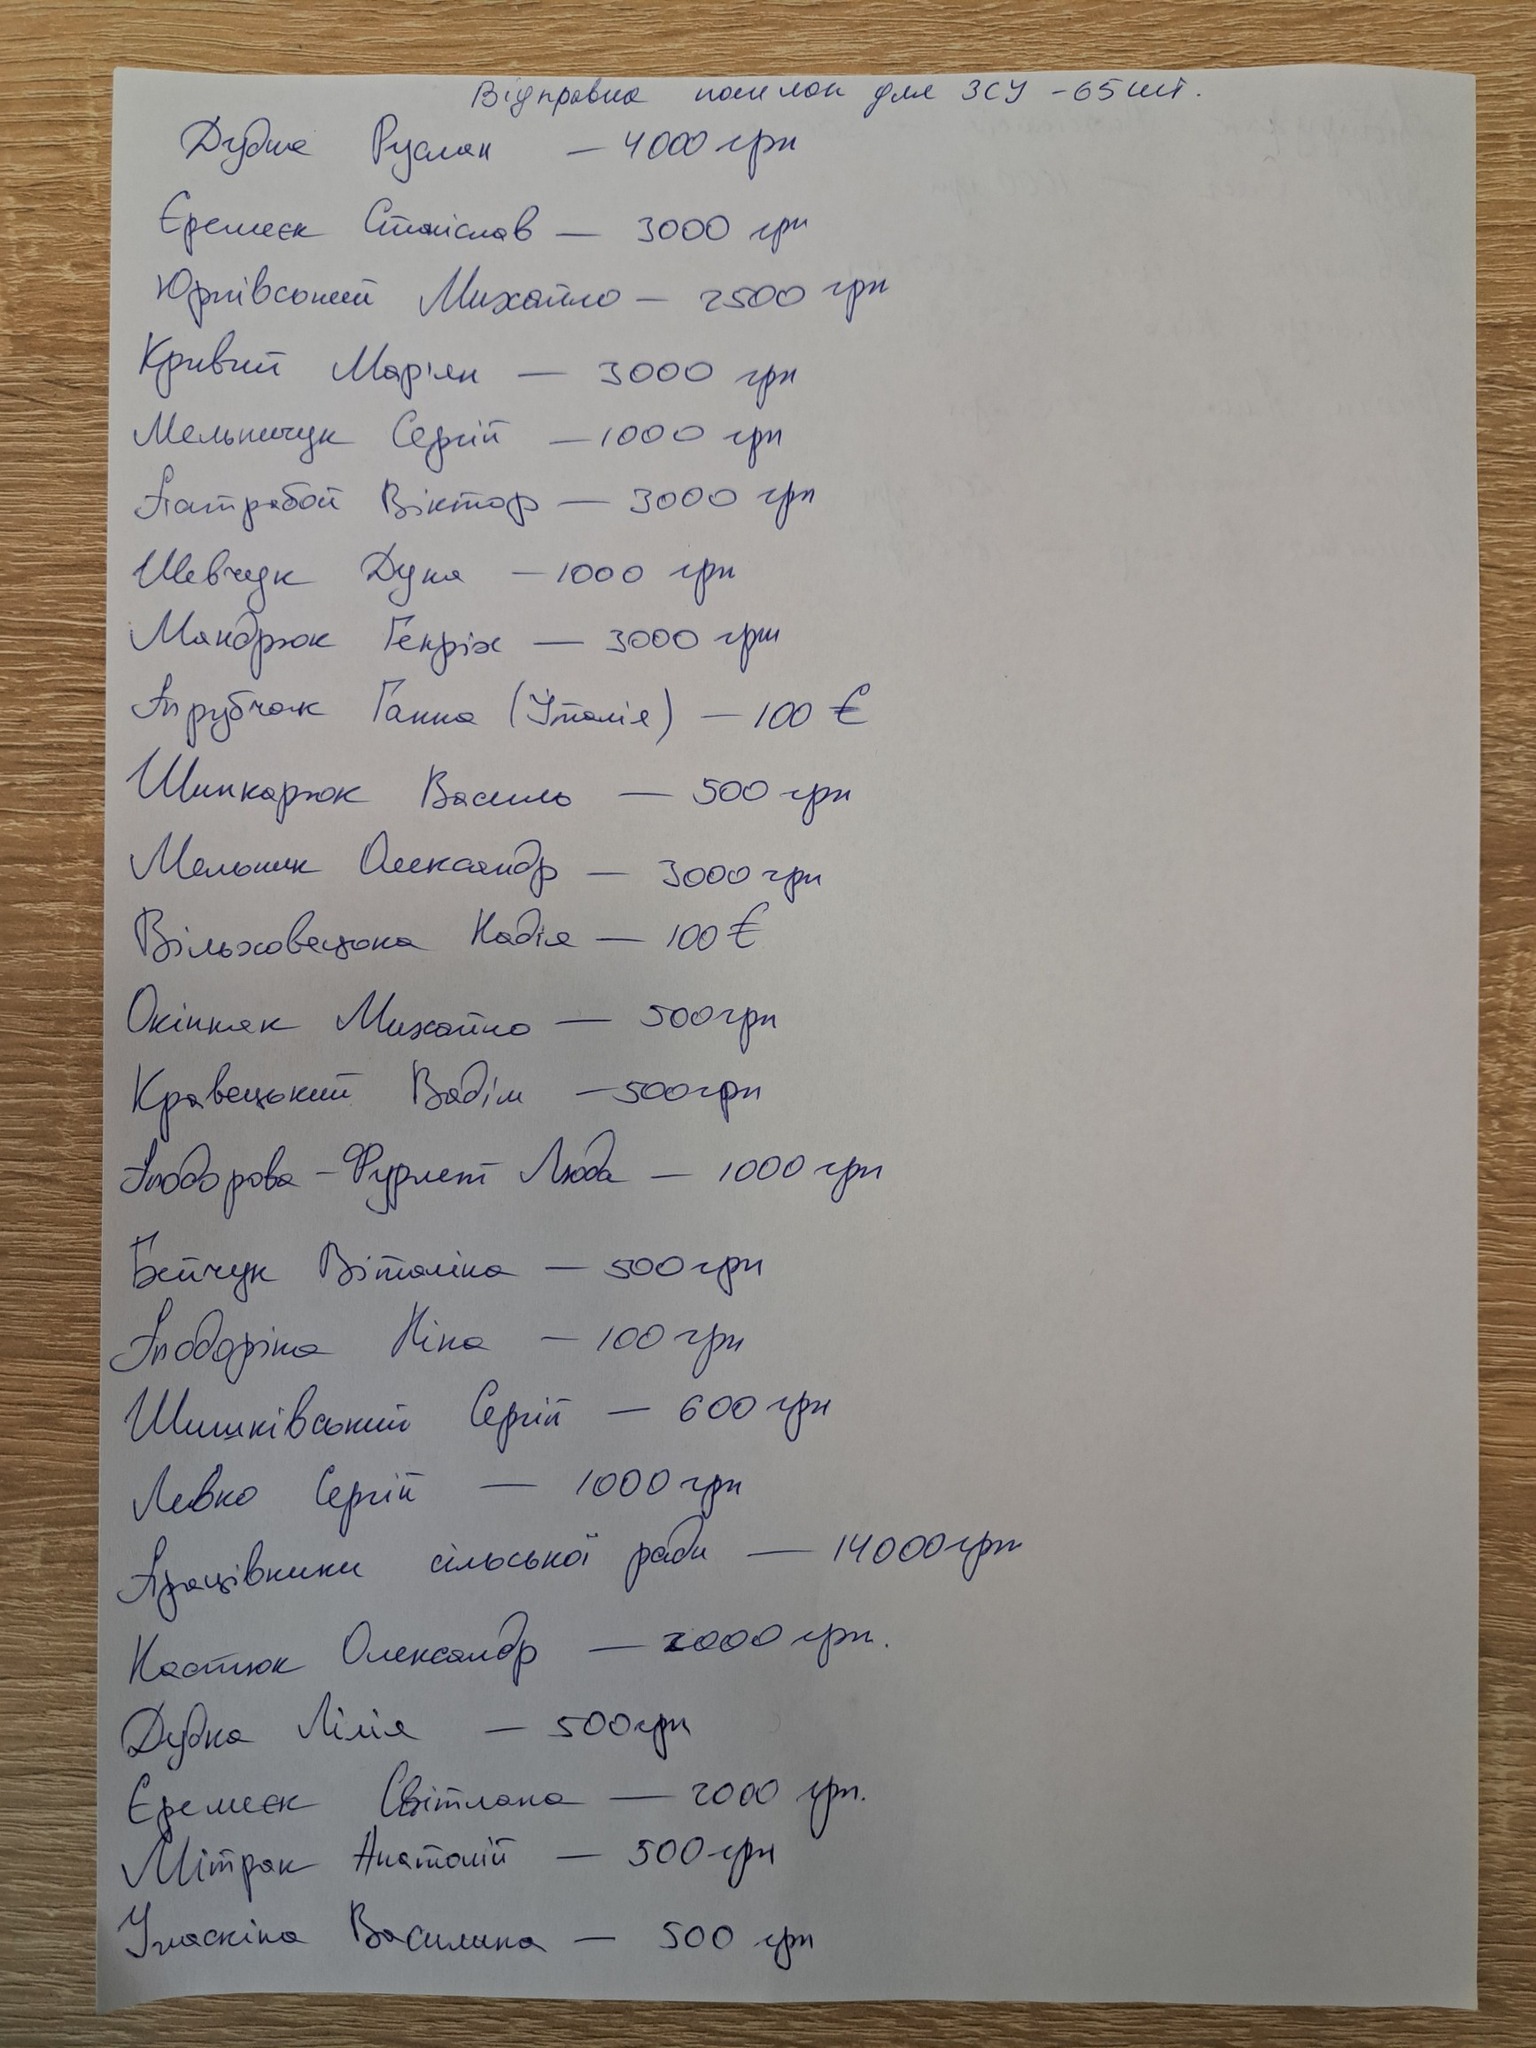 Відправка посилок для ЗСУ - 65 шт.
Дудка Руслан - 4000 грн
Єремєєк Станіслав - 3000 грн
Юрківський Михайло - 2500 грн
Кривий Мар'ян - 3000 грн
Мельничук Сергій - 1000 грн
Патрабой Віктор - 3000 грн
Шевчук Дуня - 1000 грн
Мандрюк Генріх - 3000 грн
Ганна (Італія) - 100 €
Шинкарюк Василь - 500 грн
Мельник Олександр - 3000 грн
Вільховецька Надія - 100 €
Окіпняк Михайло - 500 грн
Кравецький Вадім - 500 грн
Люда - 1000 грн
Бейчук Віталіна - 500 грн
Ніна - 100 грн
Шишківський Сергій - 600 грн
Левко Сергій - 1000 грн
Працівники сільської ради - 14000 грн
Костюк Олександр - 2000 грн.
Дудка Лілія - 500 грн
Єремєєк Світлана - 2000 грн.
Мітрак Анатолій - 500 грн
Василина - 500 грн